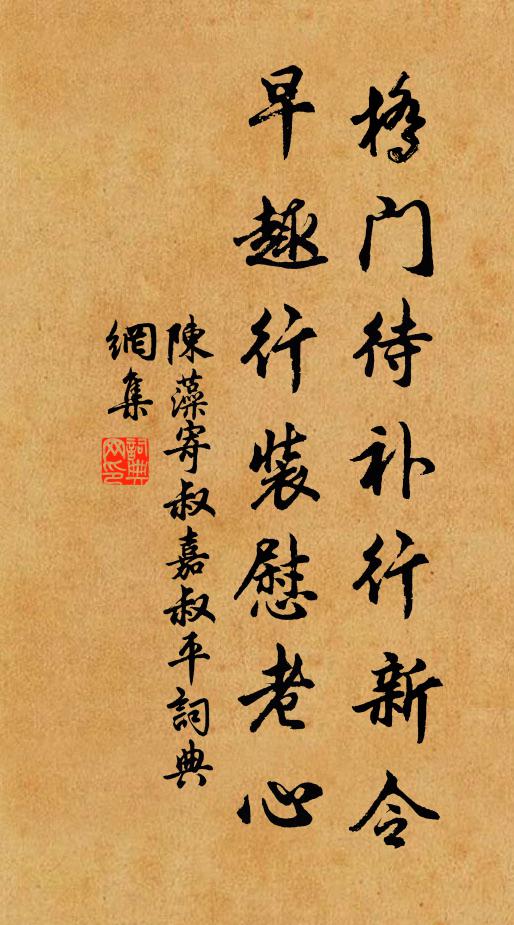 橋门待补行新令
早趣行装慰老心
陳藻寄叔嘉叔平詞典
網集
詞典网印